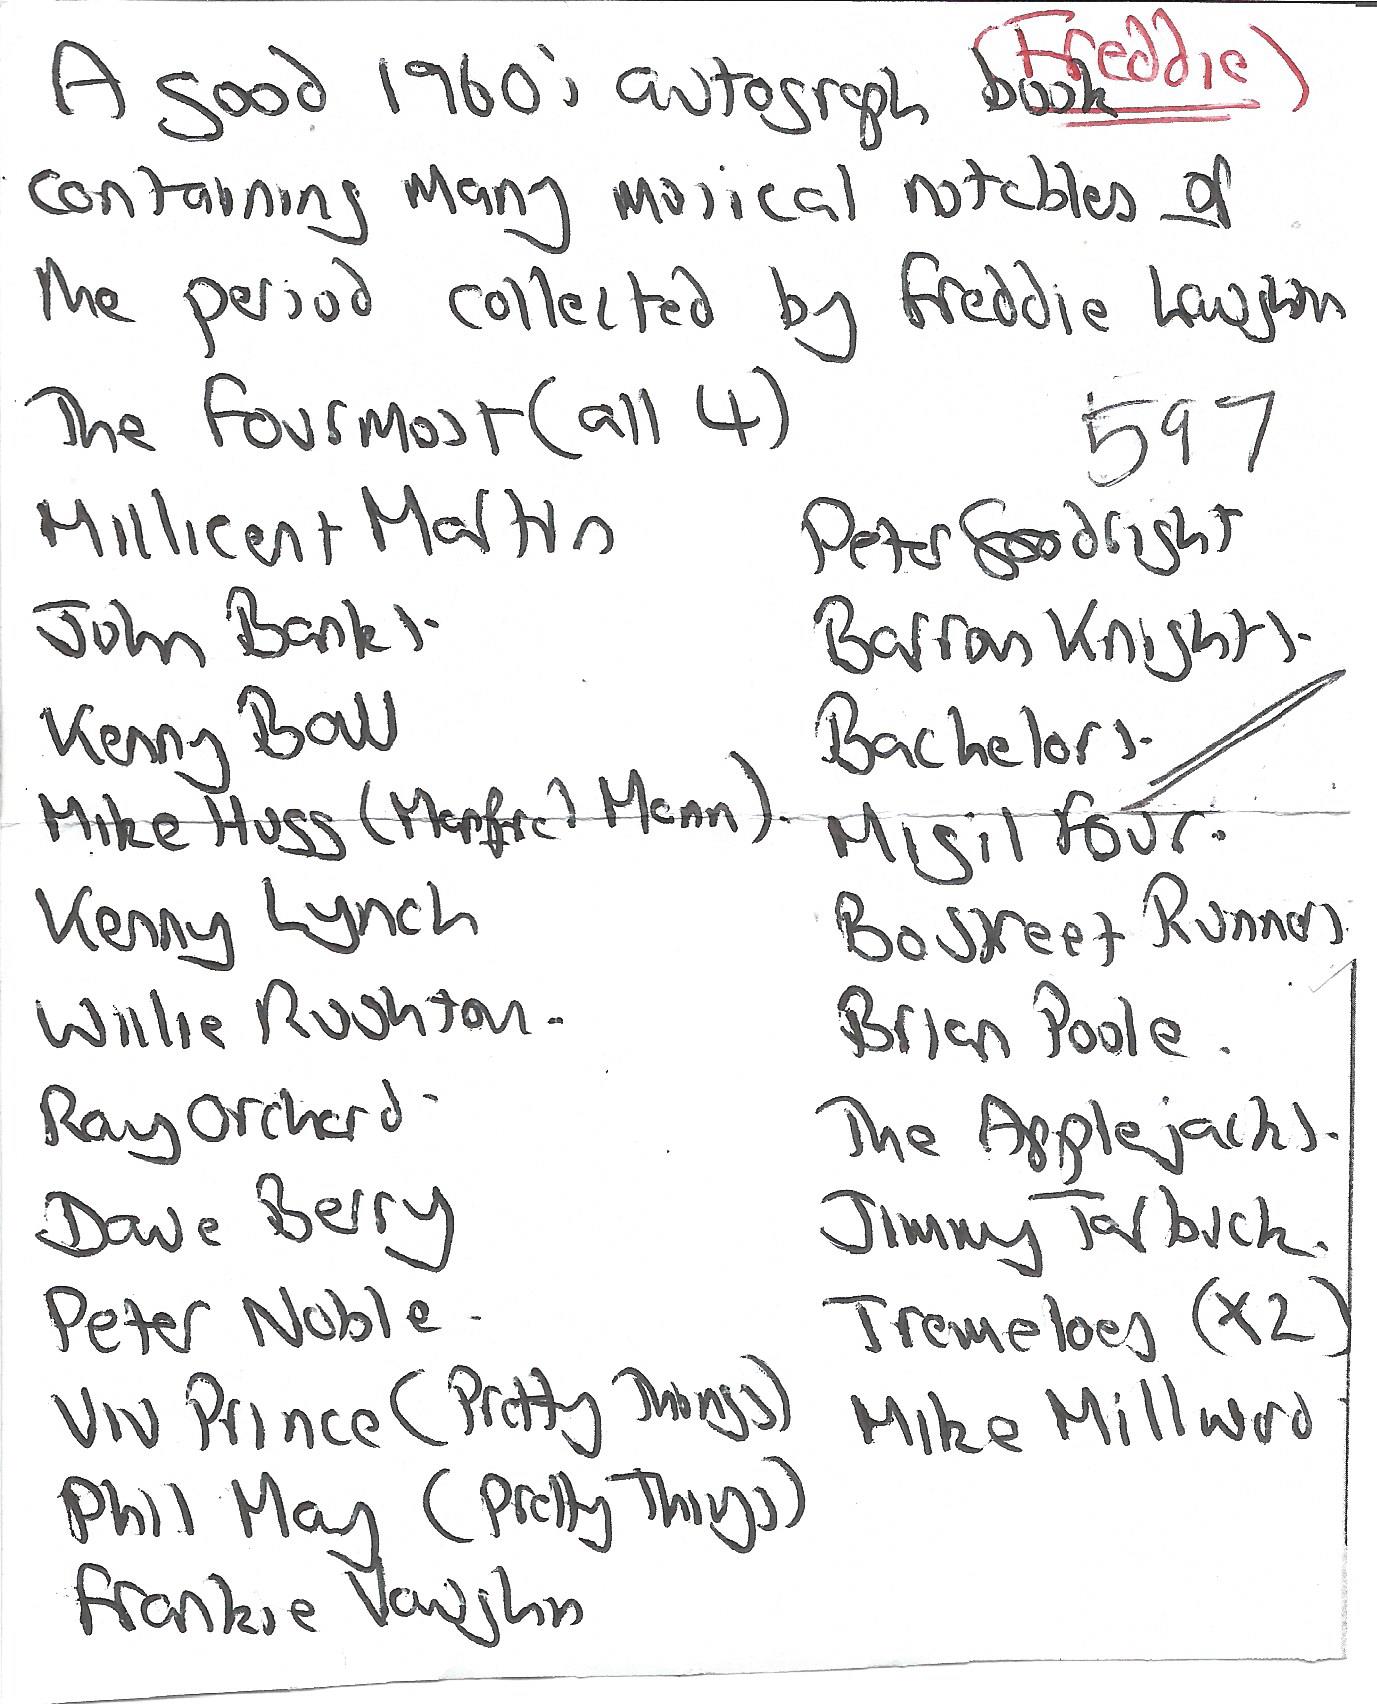 (Freddie)
A good 1960's autograph book
containing many musical notables of
the period collected by Freddie
The Fourmost (all 4)
597
Millicent Martin
John Banks.
Kenny Ball
Mike Hugg (Manfred Mann).
Kenny Lynch
Willie Rushton.
Ray Orchard.
Dave Berry
Peter Noble.
Viv Prince (Pretty Things)
Phil May (Pretty Things)
Frankie Vaughn
Peter Goodright
Barron Knights.
Bachelors.
Migil Four.
Bo Street Runners.
Brian Poole.
The Applejacks.
Jimmy Tarbuck.
Tremeloes (x2)
Mike Millward